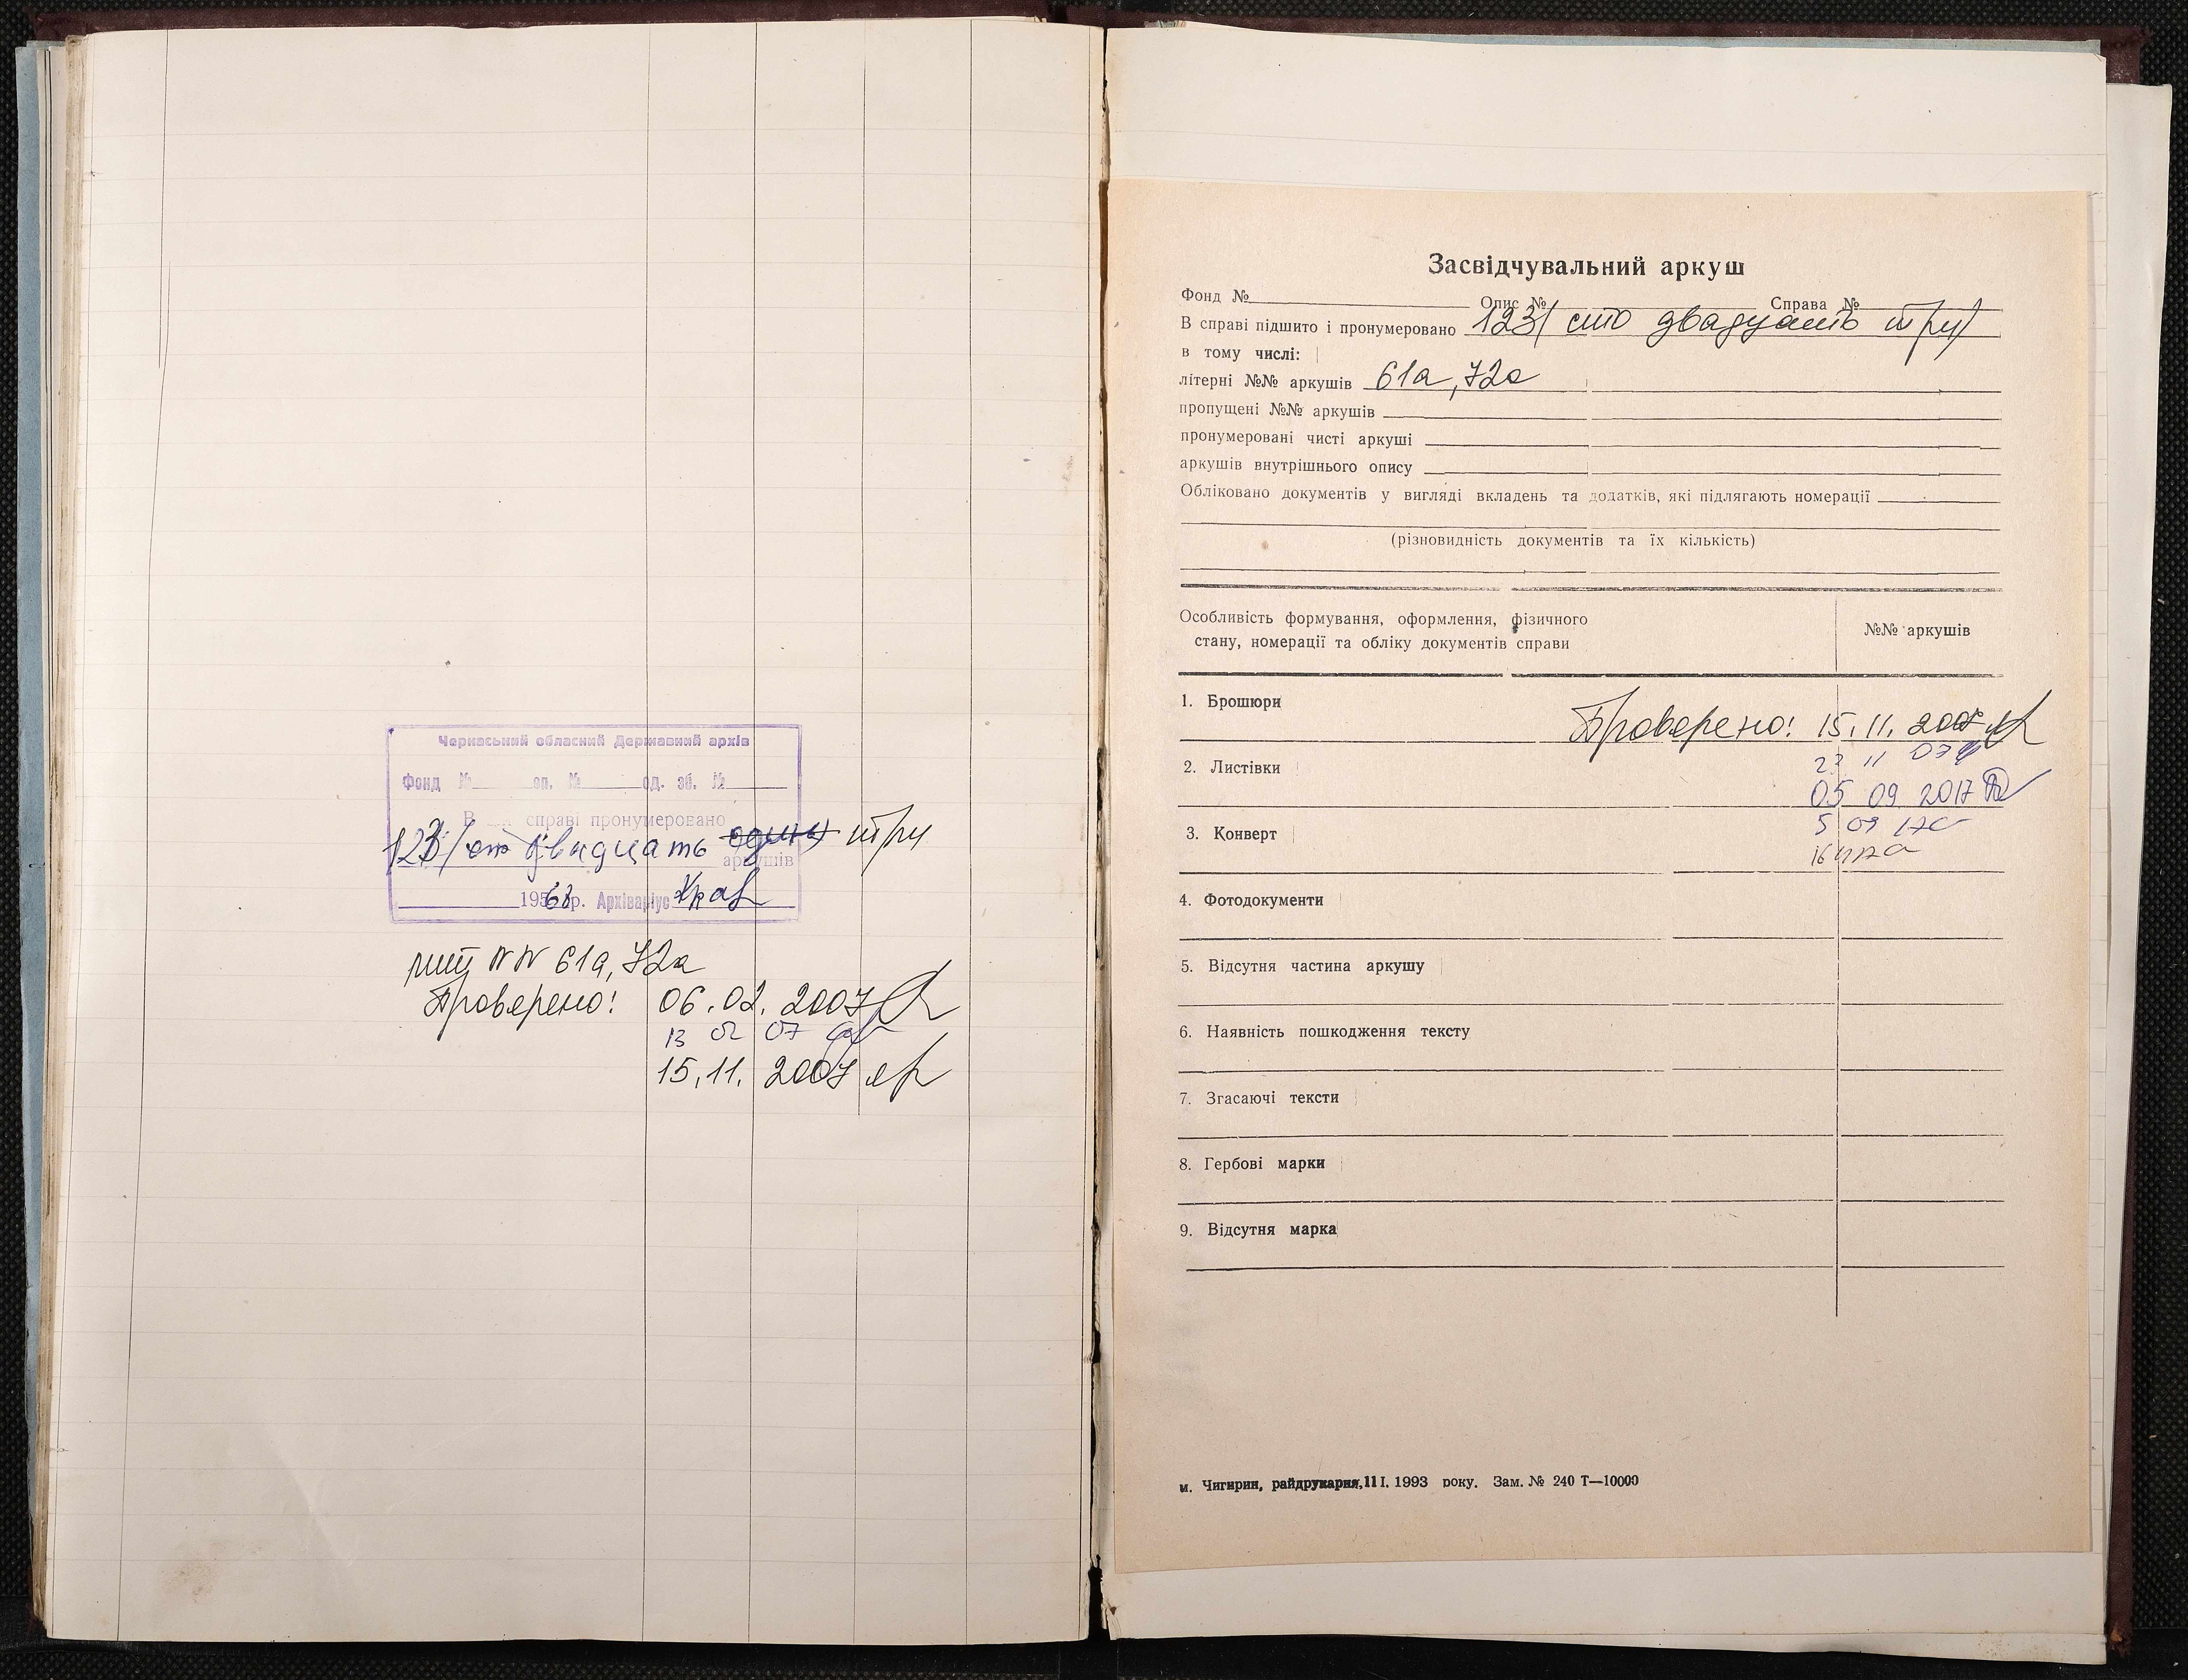 Черкаський обласний Державний архів
Фонд № оп. № од. зб. №
В цій справі пронумеровано
123/сто двадцать один) три
аркушів
1963р. Архіваріус Крав
лит NN 61а, 72а
Проверено! 06.02.2007
13 02 07
15.11.2007
Засвідчувальний аркуш
Фонд № Опис № Справа №
В справі підшито і пронумеровано 123( сто двадцать три)
в тому числі:
літерні №№ аркушів 61а, 72а
пропущені №№ аркушів
пронумеровані чисті аркуші
аркушів внутрішнього опису
Обліковано документів у вигляді вкладень та додатків, які підлягають номерації
(різновидність документів та їх кількість)
Особливість формування, оформлення, фізичного
стану, номерації та обліку документів справи
№№ аркушів
1. Брошюри
Проверено! 15.11.2007
2. Листівки
11 07
05 09 2017
3. Конверт
5 09 17
4. Фотодокументи
5. Відсутня частина аркушу
6. Наявність пошкодження тексту
7. Згасаючі тексти
8. Гербові марки
9. Відсутня марка
м. Чигирин, райдрукарня, 11 І. 1993 року. Зам. № 240 Т—10000